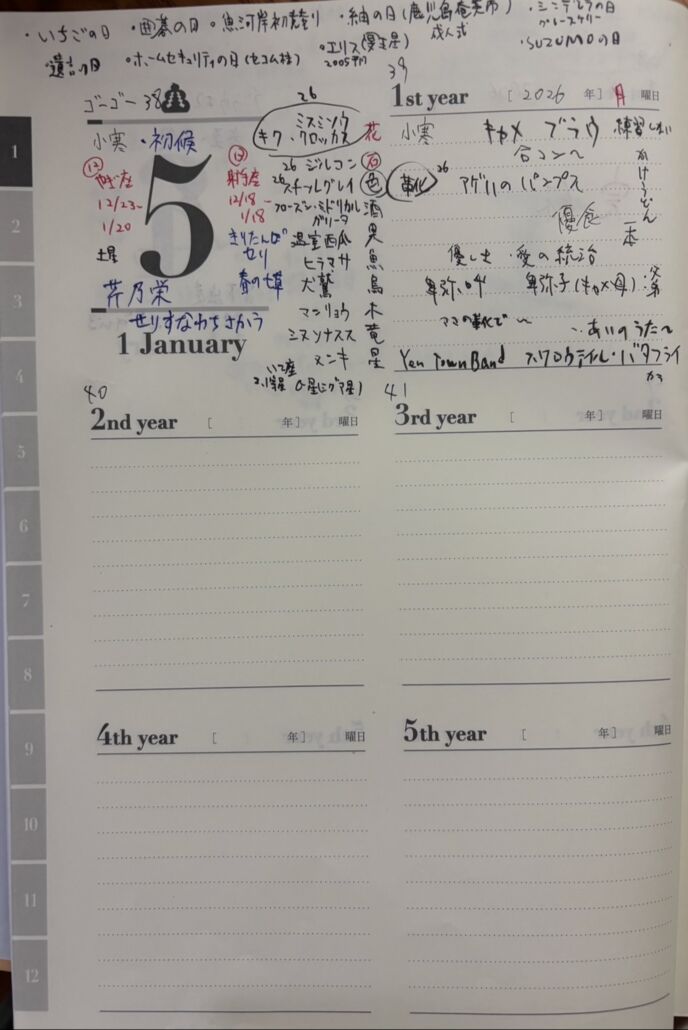 ・いちごの日 ・囲碁の日 ・魚河岸初競り ・紬の日(鹿児島奄美市) ・シンデレラの日
グレースケリー
成人式
遺言の日 ・ホームセキュリティの日(セコム株) ・エリス(冥王星) ・SUZUMOの日
2005年
39
ゴーゴー 38
小寒・初候
5
⑫
やぎ座
12/23〜
1/20
土星
⑬
射手座
12/18〜
1/18
きりたんぽ
セリ
春の七草
芹乃栄
せりすなわちさかう
1 January
26
ミスミソウ
キク・クロッカス 花
26 ジルコン 石
26 スチールグレイ 色
フローズン・ミドリカル 酒
ガリータ
温室西瓜 果
ヒラマサ 魚
犬鷲 鳥
マンリョウ 木
ミヌソナスス 竜
メンキ 星
いて座
1st year [ 2026 年] 月 曜日
小寒 キャメ ブラウ 練習しない
合コン〜
かけうどん
一本
26
革化 アゲハのパンプス
優食
優しを 愛の統治
卑弥呼 卑弥子(キャメ母)
ママの革化で〜
あいのうた〜
Yen Town Band スワロウテイル・バタフライ
から
40
2nd year [ 年] 曜日
41
3rd year [ 年] 曜日
4th year [ 年] 曜日
5th year [ 年] 曜日
1
2
3
4
5
6
7
8
9
10
11
12